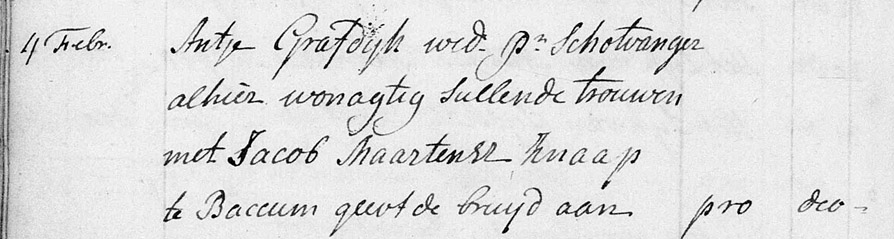 4 Febr. Antje Grafdijk wed. pn Schotvanger
alhier wonagtig sullende trouwen
met Jacob Maartensz Knaap
te Baccum geevt de bruijd aan pro deo-